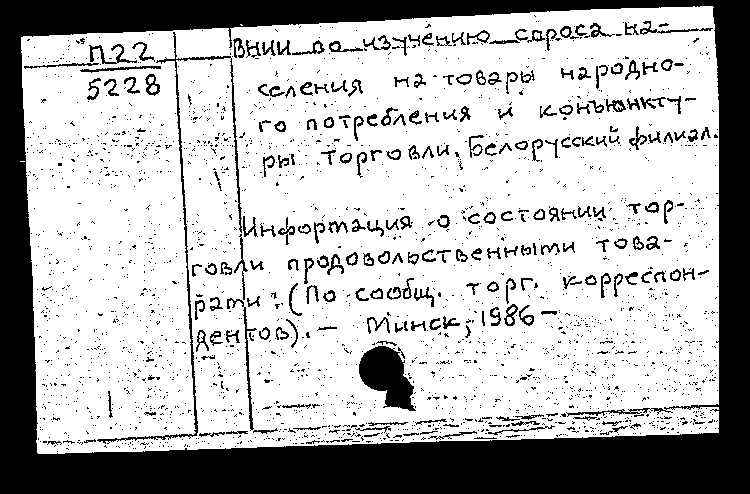 П22
5228
ВНИИ по изучению спроса на-
селения на товары народно-
го потребления и конъюнкту-
ры торговли. Белорусский филиал.
Информация о состоянии тор-
говли продовольственными това-
рами: (По сообщ. торг. корреспон-
дентов). — Минск, 1986 —